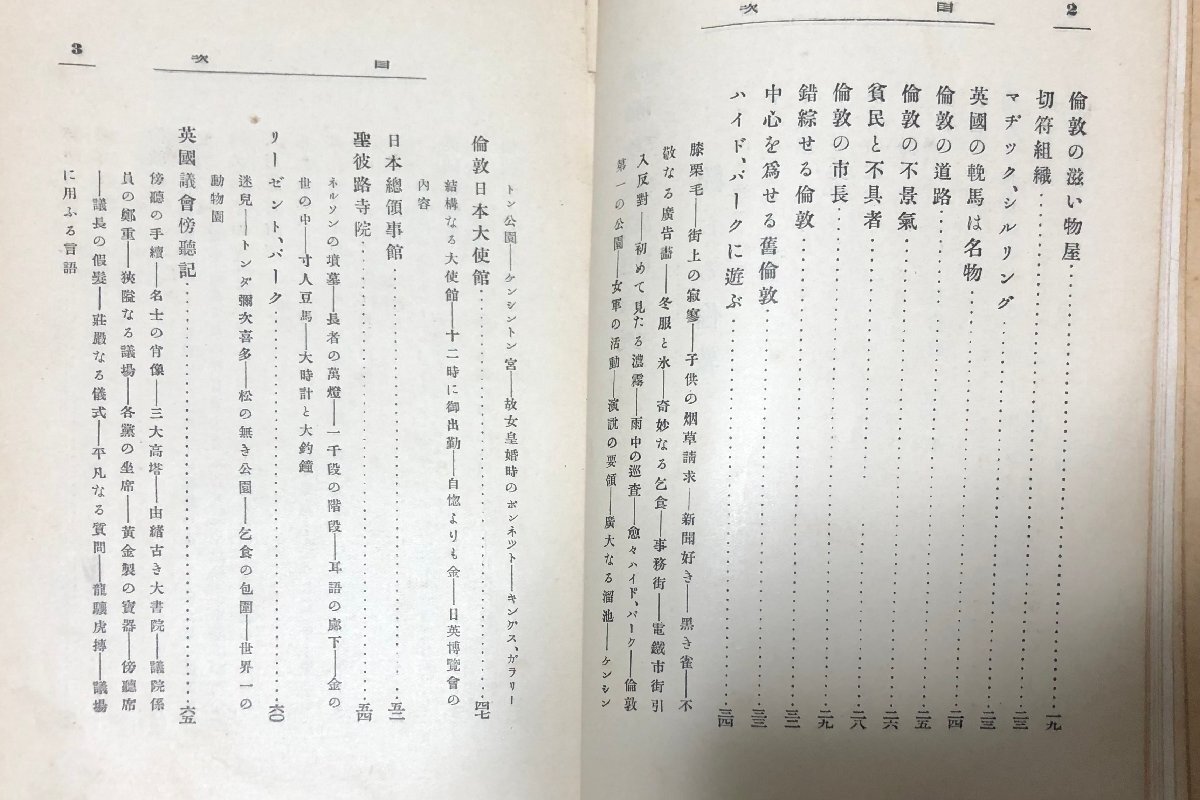 2
目次
倫敦の滋い物屋
切符組織 一九
マヂック、シルリング 二三
英國の輓馬は名物 二三
倫敦の道路 二四
倫敦の不景氣 二五
貧民と不具者 二六
倫敦の市長 二八
錯綜せる倫敦 二九
中心を爲せる舊倫敦 三二
ハイド、パークに遊ぶ 三四
膝栗毛——街上の寂寥——子供の烟草請求——新聞好き——黑き雀——不
敬なる廣告畵——冬服と氷——奇妙なる乞食——事務街——電鐵市街引
入反對——初めて見たる濃霧——雨中の巡査——愈々ハイド、パーク——倫敦
第一の公園——女軍の活動——演説の要領——廣大なる溜池——ケンシン
目次
3
トン公園——ケンシントン宮——故女皇婚時のボンネット——キングス、ガラリー
倫敦日本大使館 四七
結構なる大使館——十二時に御出勤——自惚よりも金——日英博覽會の
內容
日本總領事館 五二
聖彼路寺院 五四
ネルソンの墳墓——長者の萬燈——一千段の階段——耳語の廊下——金の
世の中——寸人豆馬——大時計と大釣鐘
リーゼント、パーク 六〇
迷兒——トンダ彌次喜多——松の無き公園——乞食の包圍——世界一の
動物園
英國議會傍聽記 六五
傍聽の手續——名士の肖像——三大高塔——由緖古き大書院——議院係
員の鄭重——狹隘なる議場——各黨の坐席——黃金製の寶器——傍聽席
——議長の假髮——莊嚴なる儀式——平凡なる質問——龍驤虎搏——議場
に用ふる言語